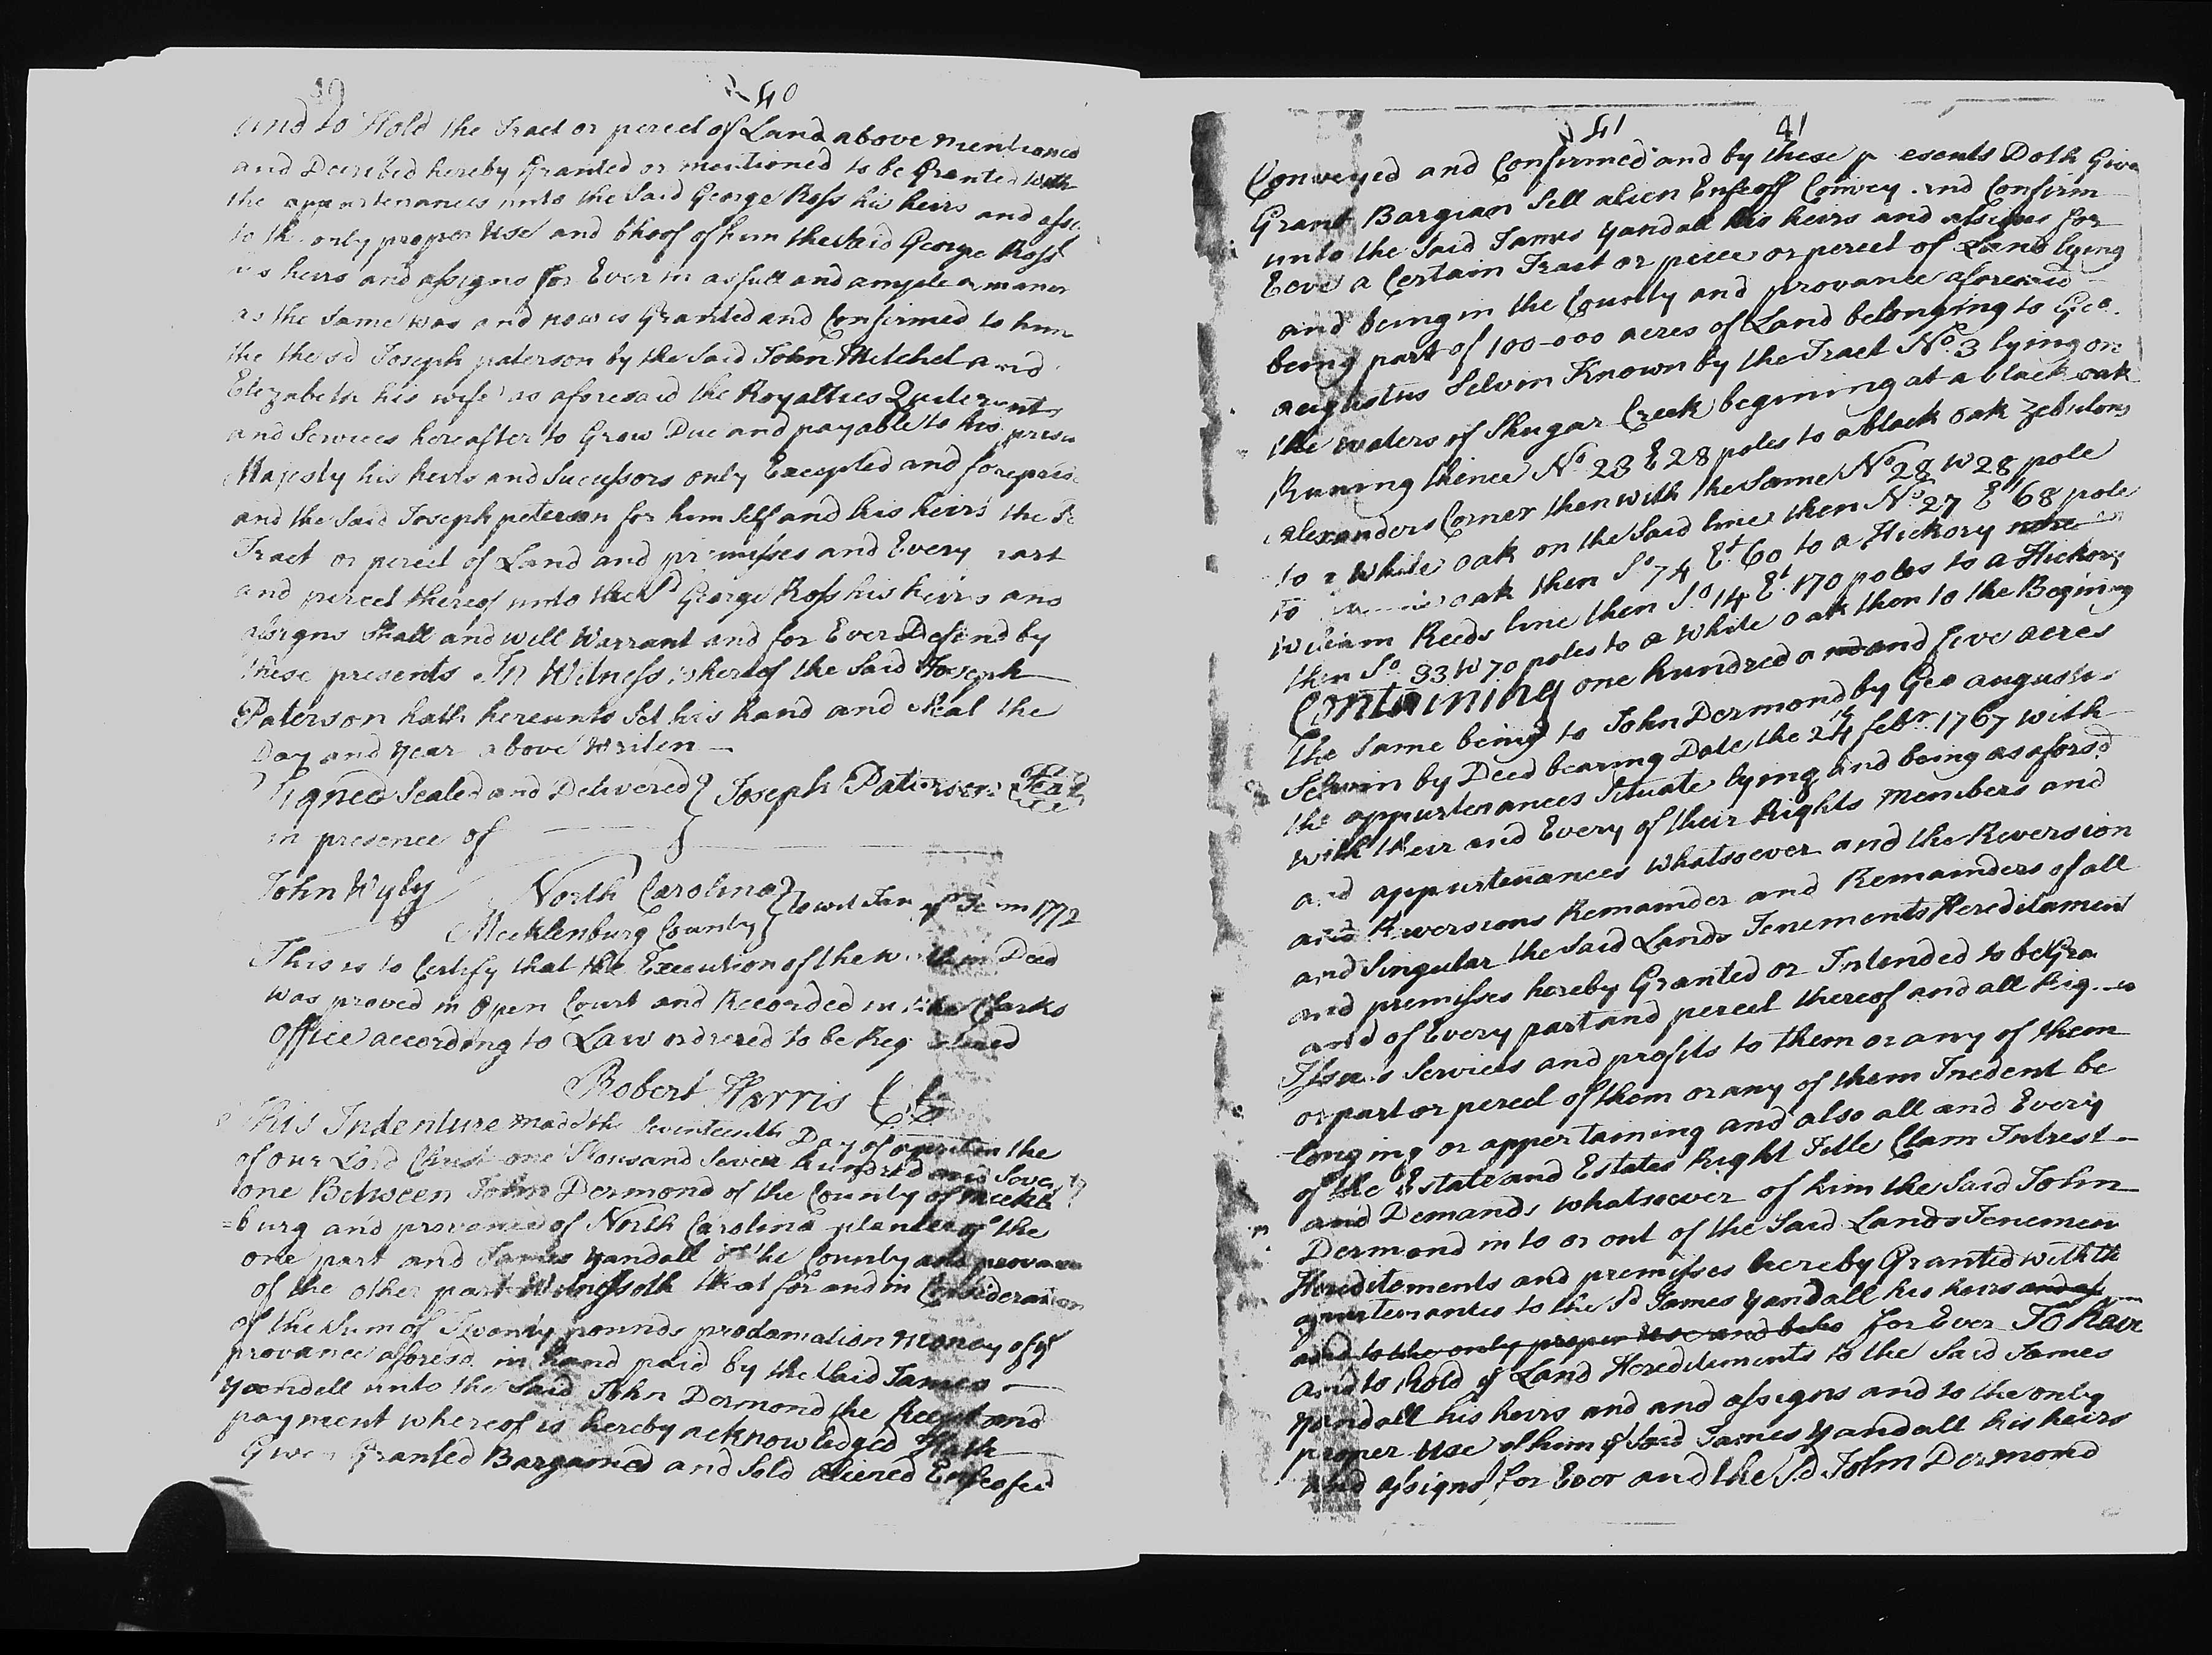 40
and to Hold the Tract or percel of Land above mentioned
and Decribed hereby Granted or mentioned to be Granted with
the appurtenances unto the Said George Ross his heirs and assi
to the only proper Use and bhoof of him the Said George Ross
his heirs and assigns for Ever in as full and ample a maner
as the Same was and now is Granted and Confirmed to him
the the sd Joseph paterson by the Said John Mitchel and
Elizabeth his wife as aforesaid the Royalties Quiterents
and Services hereafter to Grow Due and payable to his presen
Majesty his heirs and Sucessors only Excepted and foreprised
and the Said Joseph peterson for him Self and his heirs the Sd
Tract or percel of Land and premisses and Every part
and percel thereof unto the Sd George Ross his heirs and
assigns Shall and will Warrant and for Ever Defend by
these presents In Witness whereof the Said Joseph
Paterson hath hereunto Set his hand and Seal the
Day and year above Writen
Signed Sealed and Delivered } Joseph Paterson Seal
in presence of
John Wyly North Carolina }
Mecklenburg County } to wit Jany Term 1772
This is to Certify that the Execution of the within Deed
was proved in Open Court and Recorded in the Clarks
office according to Law ordered to be Registered
Robert Harris
This Indenture made the Seventeenth Day of april in the
of our Lord Christ one Thousand Seven hundred and Seventy
one Between John Dermond of the County of Meckle
=burg and provance of North Carolina planter of the
one part and James Yandall of the County and provance
of the other part Witnesseth that for and in Consideration
of the Sum of Twenty pounds proclamation money of ye
provance aforesd in hand paid by the Said James
Yandell unto the Said John Dermond the Receipt and
payment whereof is hereby acknowledged Hath
Given Granted Bargained and Sold aliened Enfeofed
41 41
Conveyed and Confirmed and by these presents Doth Give
Grant Bargian Sell alien Enfeoff Convey and Confirm
unto the Said James Yandall his heirs and assigns for
Ever a Certain Tract or peice or percel of Land lying
and being in the County and provance aforesaid
being part of 100-000 acres of Land belonging to Geo.
augustus Selvin Known by the Tract No. 3 lying on
the waters of Shugar Creek begining at a black oak
Runing thence No 23 E 28 poles to a black oak Zebulon
alexanders Corner then with the Same No 28 W 28 pole
to a White oak on the Said line then No 27 Et 68 pole
to oak then So 74 Et 60 to a Hickory
William Reeds line then So 14 Et 170 poles to a Hickory
then So 33 W 70 poles to a White oak then to the Begining
Containing one hundred and and five acres
the Same being to John Dermond by Geo augustus
Selwin by Deed bearing Date the 24th febr 1767 with
the appurtenances Situate lying and being as aforsd
with their and Every of their Rights Members and
and appurtenances whatsoever and the Reversion
and Reversions Remainder and Remainders of all
and Singular the Said Lands Tenements Hereditament
and premisses hereby Granted or Intended to be Gra
and of Every part and percel thereof and all
Issues Services and profits to them or any of them
or part or percel of them or any of them Inedent be
longing or appertaining and also all and Every
of the Estate and Estates Right Title Clam Intrest
and Demands whatsoever of him the Said John
Dermond in to or out of the Said Lands Tenemen
Hereditements and premisses hereby Granted with th
apurtenantes to the Sd James Yandall his heirs and as
and to the only proper Use and beho for Ever To Have
and to hold ye Land Hereditements to the Said James
Yandall his heirs and and assigns and to the only
proper Use of him ye Said James Yandall his heirs
and assigns for Ever and the Sd John Dermond